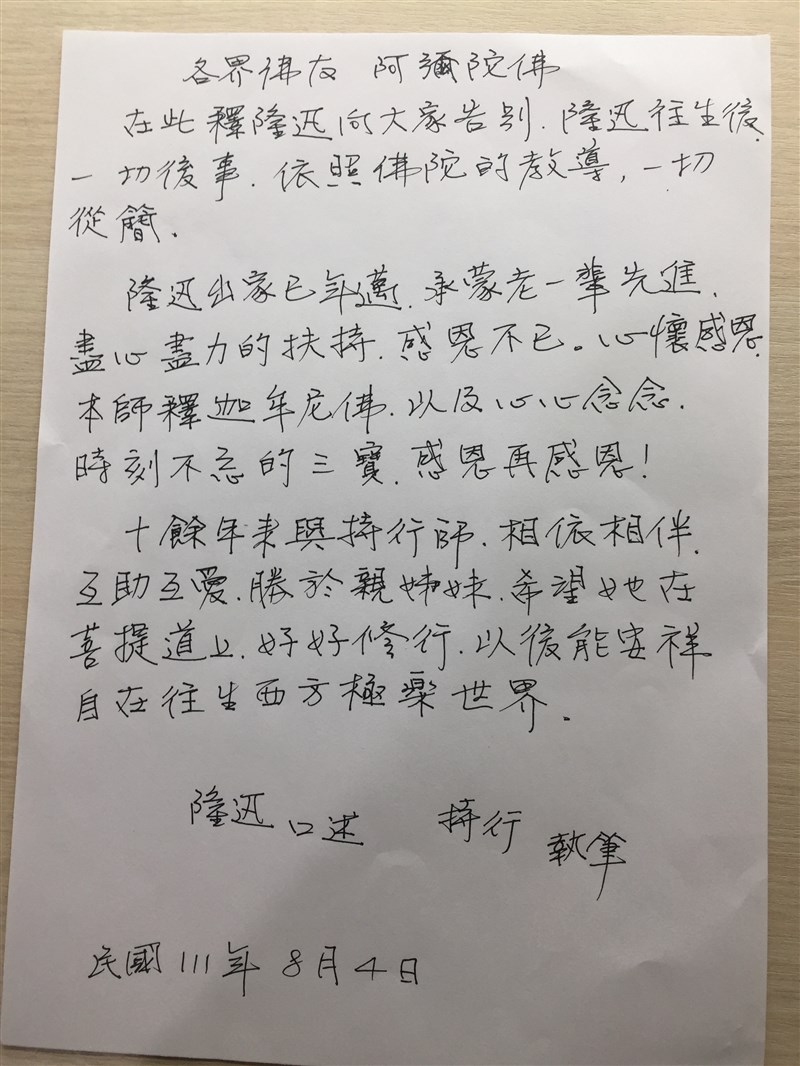 各界佛友 阿彌陀佛
在此釋隆迅向大家告別.隆迅往生後.
一切後事.依照佛陀的教導,一切
從簡.
隆迅出家已年邁.承蒙老一輩先進.
盡心盡力的扶持.感恩不已。心懷感恩.
本師釋迦牟尼佛.以及心心念念.
時刻不忘的三寶.感恩再感恩!
十餘年來與持行師.相依相伴.
互助互愛.勝於親姊妹.希望她在
菩提道上.好好修行.以後能安祥
自在往生西方極樂世界.
隆迅口述 持行執筆
民國111年8月4日